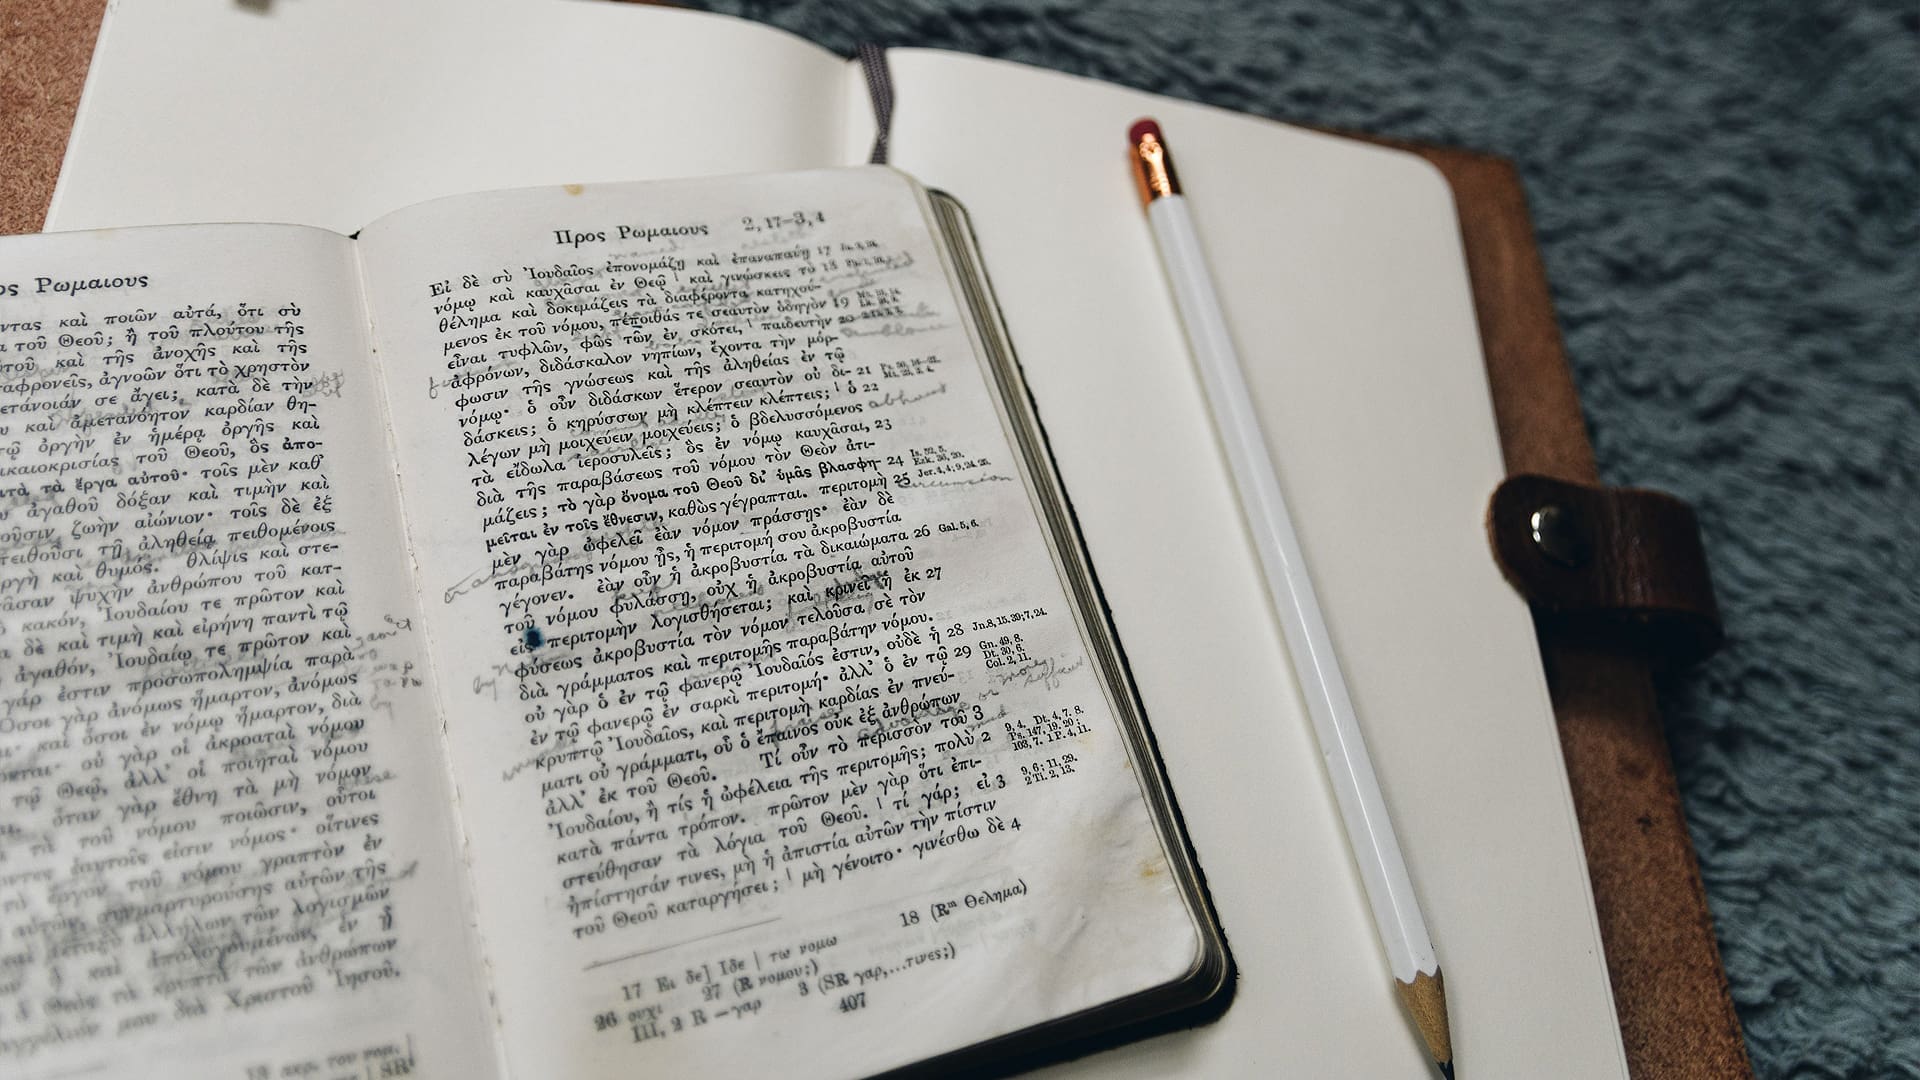 ος Ρωμαιους
ντας καὶ ποιῶν αὐτά, ὅτι σὺ
τοῦ Θεοῦ; ἢ τοῦ πλούτου τῆς
τοῦ καὶ τῆς ἀνοχῆς καὶ τῆς
αφρονεῖς, ἀγνοῶν ὅτι τὸ χρηστὸν
ετάνοιάν σε ἄγει; κατὰ δὲ τὴν
καὶ ἀμετανόητον καρδίαν θη-
ὀργὴν ἐν ἡμέρᾳ ὀργῆς καὶ
ικαιοκρισίας τοῦ Θεοῦ, ὃς ἀπο-
τὰ ἔργα αὐτοῦ· τοῖς μὲν καθ᾽
ἀγαθοῦ δόξαν καὶ τιμὴν καὶ
οῦσιν ζωὴν αἰώνιον· τοῖς δὲ ἐξ
πειθοῦσι τῇ ἀληθείᾳ πειθομένοις
ργὴ καὶ θυμός. θλῖψις καὶ στε-
ᾶσαν ψυχὴν ἀνθρώπου τοῦ κατ-
κακόν, Ἰουδαίου τε πρῶτον καὶ
δὲ καὶ τιμὴ καὶ εἰρήνη παντὶ τῷ
ἀγαθόν, Ἰουδαίῳ τε πρῶτον καὶ
γάρ ἐστιν προσωπολημψία παρὰ
Ὅσοι γὰρ ἀνόμως ἥμαρτον, ἀνόμως
καὶ ὅσοι ἐν νόμῳ ἥμαρτον, διὰ
οὐ γὰρ οἱ ἀκροαταὶ νόμου
τῷ Θεῷ, ἀλλ᾽ οἱ ποιηταὶ νόμου
ὅταν γὰρ ἔθνη τὰ μὴ νόμον
τὰ τοῦ νόμου ποιῶσιν, οὗτοι
ἑαυτοῖς εἰσιν νόμος· οἵτινες
τὸ ἔργον τοῦ νόμου γραπτὸν ἐν
αὐτῶν, συμμαρτυρούσης αὐτῶν τῆς
καὶ μεταξὺ ἀλλήλων τῶν λογισμῶν
καὶ ἀπολογουμένων, ἐν ᾗ
ὁ Θεὸς τὰ κρυπτὰ τῶν ἀνθρώπων
μου διὰ Χριστοῦ Ἰησοῦ.
Προς Ρωμαιους 2, 17–3, 4
Εἰ δὲ σὺ Ἰουδαῖος ἐπονομάζῃ καὶ ἐπαναπαύῃ 17
νόμῳ καὶ καυχᾶσαι ἐν Θεῷ | καὶ γινώσκεις τὸ 18
θέλημα καὶ δοκιμάζεις τὰ διαφέροντα κατηχού-
μενος ἐκ τοῦ νόμου, πέποιθάς τε σεαυτὸν ὁδηγὸν 19
εἶναι τυφλῶν, φῶς τῶν ἐν σκότει, | παιδευτὴν 20
ἀφρόνων, διδάσκαλον νηπίων, ἔχοντα τὴν μόρ-
φωσιν τῆς γνώσεως καὶ τῆς ἀληθείας ἐν τῷ
νόμῳ· ὁ οὖν διδάσκων ἕτερον σεαυτὸν οὐ δι- 21
δάσκεις; ὁ κηρύσσων μὴ κλέπτειν κλέπτεις; | ὁ 22
λέγων μὴ μοιχεύειν μοιχεύεις; ὁ βδελυσσόμενος abhors
τὰ εἴδωλα ἱεροσυλεῖς; ὃς ἐν νόμῳ καυχᾶσαι, 23
διὰ τῆς παραβάσεως τοῦ νόμου τὸν Θεὸν ἀτι-
μάζεις; τὸ γὰρ ὄνομα τοῦ Θεοῦ δι᾽ ὑμᾶς βλασφη- 24 Is. 52, 5. Ezk. 36, 20.
μεῖται ἐν τοῖς ἔθνεσιν, καθὼς γέγραπται. περιτομὴ 25 Jer. 4, 4; 9, 24. 25.
circumcision
μὲν γὰρ ὠφελεῖ ἐὰν νόμον πράσσῃς· ἐὰν δὲ
παραβάτης νόμου ᾖς, ἡ περιτομή σου ἀκροβυστία
γέγονεν. ἐὰν οὖν ἡ ἀκροβυστία τὰ δικαιώματα 26 Gal. 5, 6.
τοῦ νόμου φυλάσσῃ, οὐχ ἡ ἀκροβυστία αὐτοῦ
εἰς περιτομὴν λογισθήσεται; καὶ κρινεῖ ἡ ἐκ 27
φύσεως ἀκροβυστία τὸν νόμον τελοῦσα σὲ τὸν
διὰ γράμματος καὶ περιτομῆς παραβάτην νόμου.
οὐ γὰρ ὁ ἐν τῷ φανερῷ Ἰουδαῖός ἐστιν, οὐδὲ ἡ 28 Jn. 8, 15. 39; 7, 24.
ἐν τῷ φανερῷ ἐν σαρκὶ περιτομή· ἀλλ᾽ ὁ ἐν τῷ 29 Gn. 49, 8. Dt. 30, 6. Col. 2, 11.
κρυπτῷ Ἰουδαῖος, καὶ περιτομὴ καρδίας ἐν πνεύ-
ματι οὐ γράμματι, οὗ ὁ ἔπαινος οὐκ ἐξ ἀνθρώπων
ἀλλ᾽ ἐκ τοῦ Θεοῦ. Τί οὖν τὸ περισσὸν τοῦ 3
Ἰουδαίου, ἢ τίς ἡ ὠφέλεια τῆς περιτομῆς; πολὺ 2 9, 4. Dt. 4, 7. 8. Ps. 147, 19. 20; 103, 7. 1 P. 4, 11.
κατὰ πάντα τρόπον. πρῶτον μὲν γὰρ ὅτι ἐπι-
στεύθησαν τὰ λόγια τοῦ Θεοῦ. | τί γάρ; εἰ 3 9, 6; 11, 29. 2 Ti. 2, 13.
ἠπίστησάν τινες, μὴ ἡ ἀπιστία αὐτῶν τὴν πίστιν
τοῦ Θεοῦ καταργήσει; | μὴ γένοιτο· γινέσθω δὲ 4
17 Ει δε] Ιδε | τω νομω 18 (Rᵐ Θελημα)
26 ουχι 27 (R νομου;) 3 (SR γαρ,...τινες;)
III, 2 R –γαρ
407